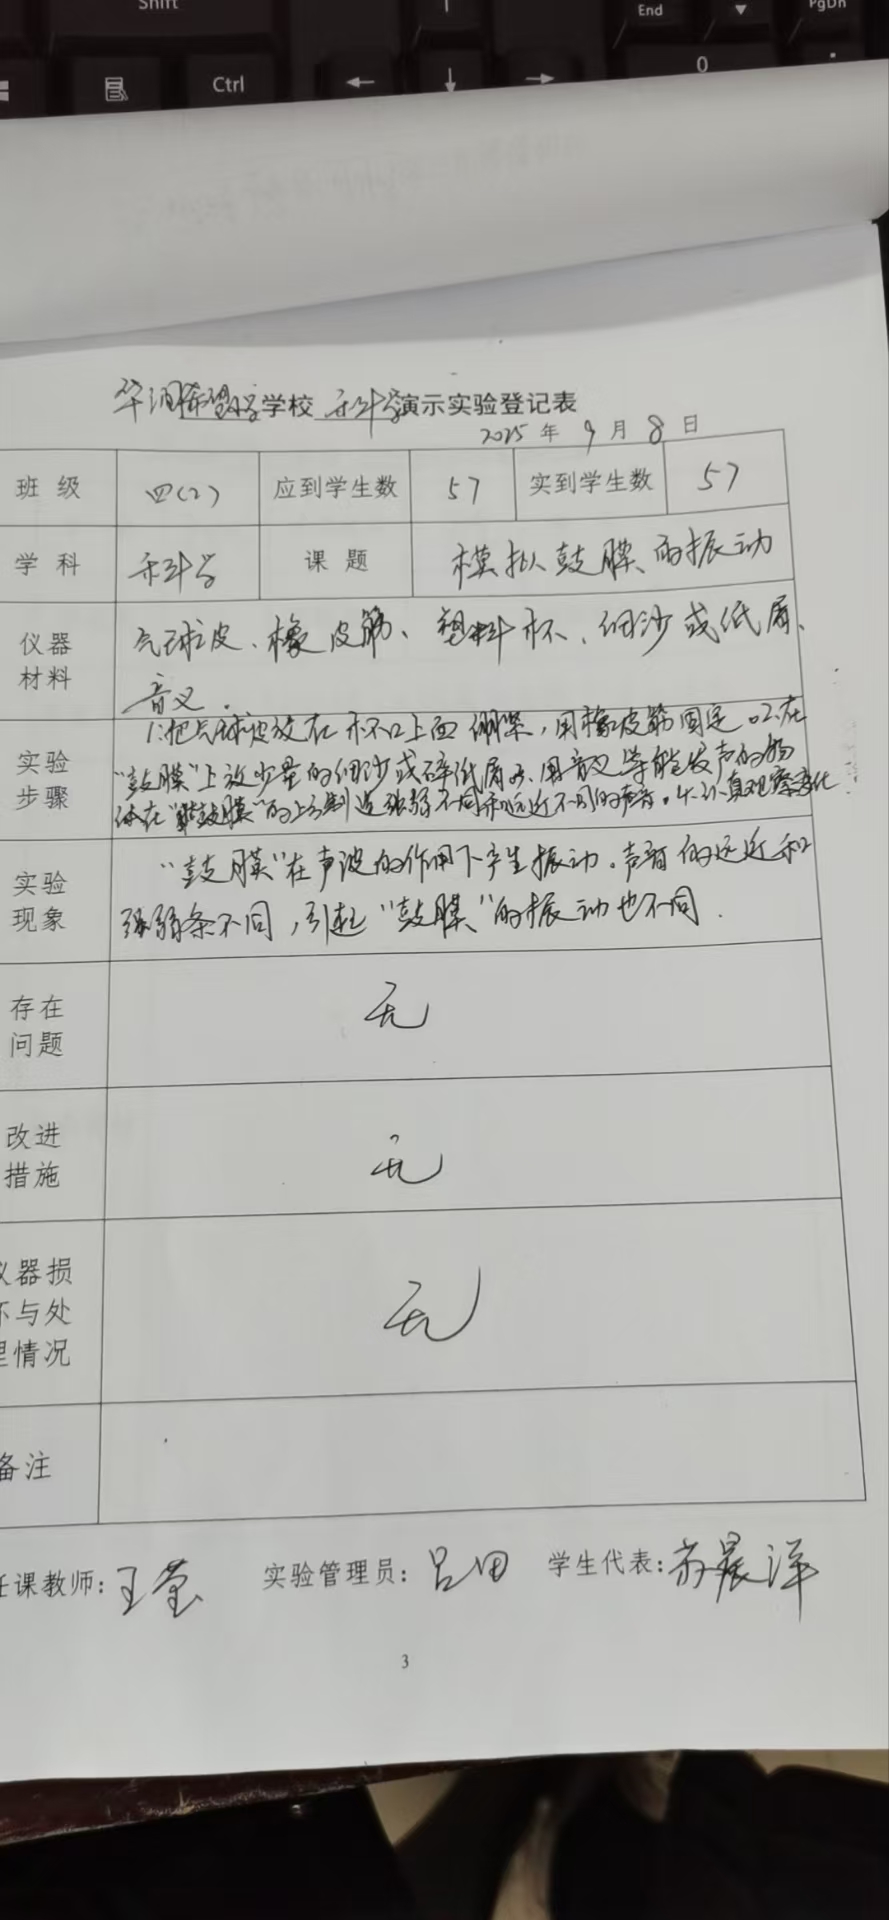 Shift
End
PgDn
Ctrl
0
华润希望小学学校 科学演示实验登记表
2025 年 9 月 8 日
班级 四(2) 应到学生数 57 实到学生数 57
学科 科学 课题 模拟鼓膜的振动
仪器材料 气球皮、橡皮筋、塑料杯、细沙或纸屑、
音叉.
实验步骤 1.把气球皮放在杯口上面绷紧,用橡皮筋固定。2.在
“鼓膜”上放少量的细沙或碎纸屑 3.用音叉等能发声的物
体在“鼓膜”的上方制造强弱不同和远近不同的声音。4.认真观察变化
实验现象 “鼓膜”在声波的作用下产生振动。声音的远近和
强弱不同,引起“鼓膜”的振动也不同.
存在问题 无
改进措施 无
仪器损坏与处理情况 无
备注
任课教师:王莹 实验管理员:吕田 学生代表:晨洋
3